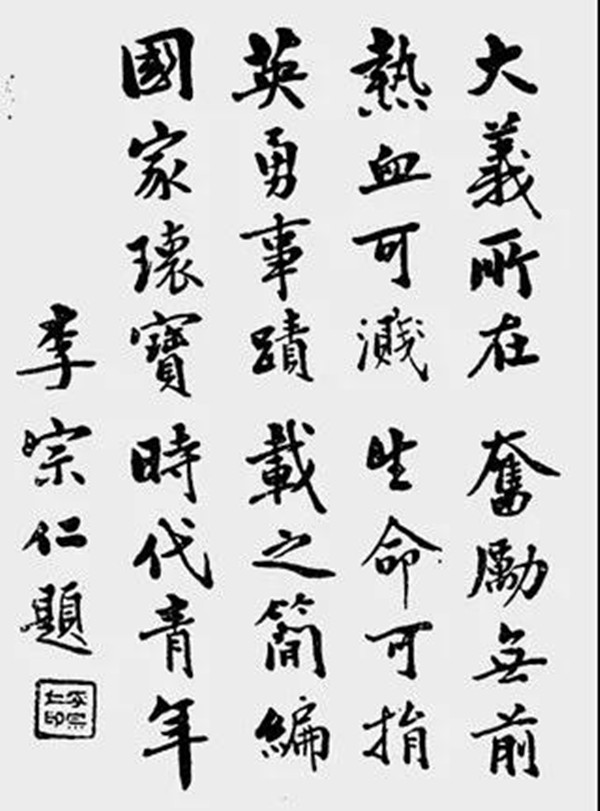 大義所在 奮勵無前
熱血可濺 生命可捐
英勇事蹟 載之簡編
國家瓌寶 時代青年
李宗仁題
李宗仁印